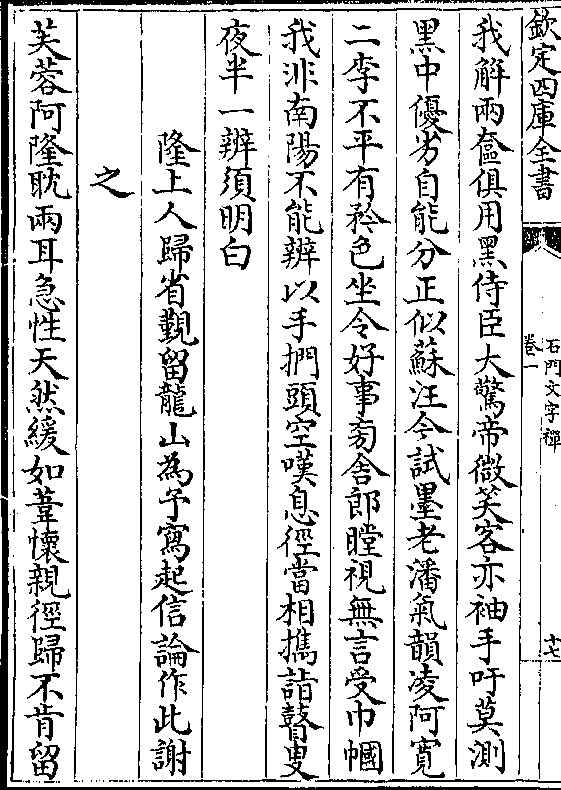 欽定四庫全書
石門文字禪
卷一
十七
我解兩奩俱用黑侍臣大驚帝微笑客亦袖手吁莫測
黑中優劣自能分正似蘇汪今試墨老潘氣韻凌阿寛
二李不平有矜色坐令好事面舍郎瞠視無言受巾幗
我非南陽不能辨以手捫頭空嘆息徑當相攜詣瞽叟
夜半一辨須明白
隆上人歸省覲留龍山為予寫起信論作此謝
之
芙蓉阿隆耽兩耳急性天然緩如葦懷親徑歸不肯留